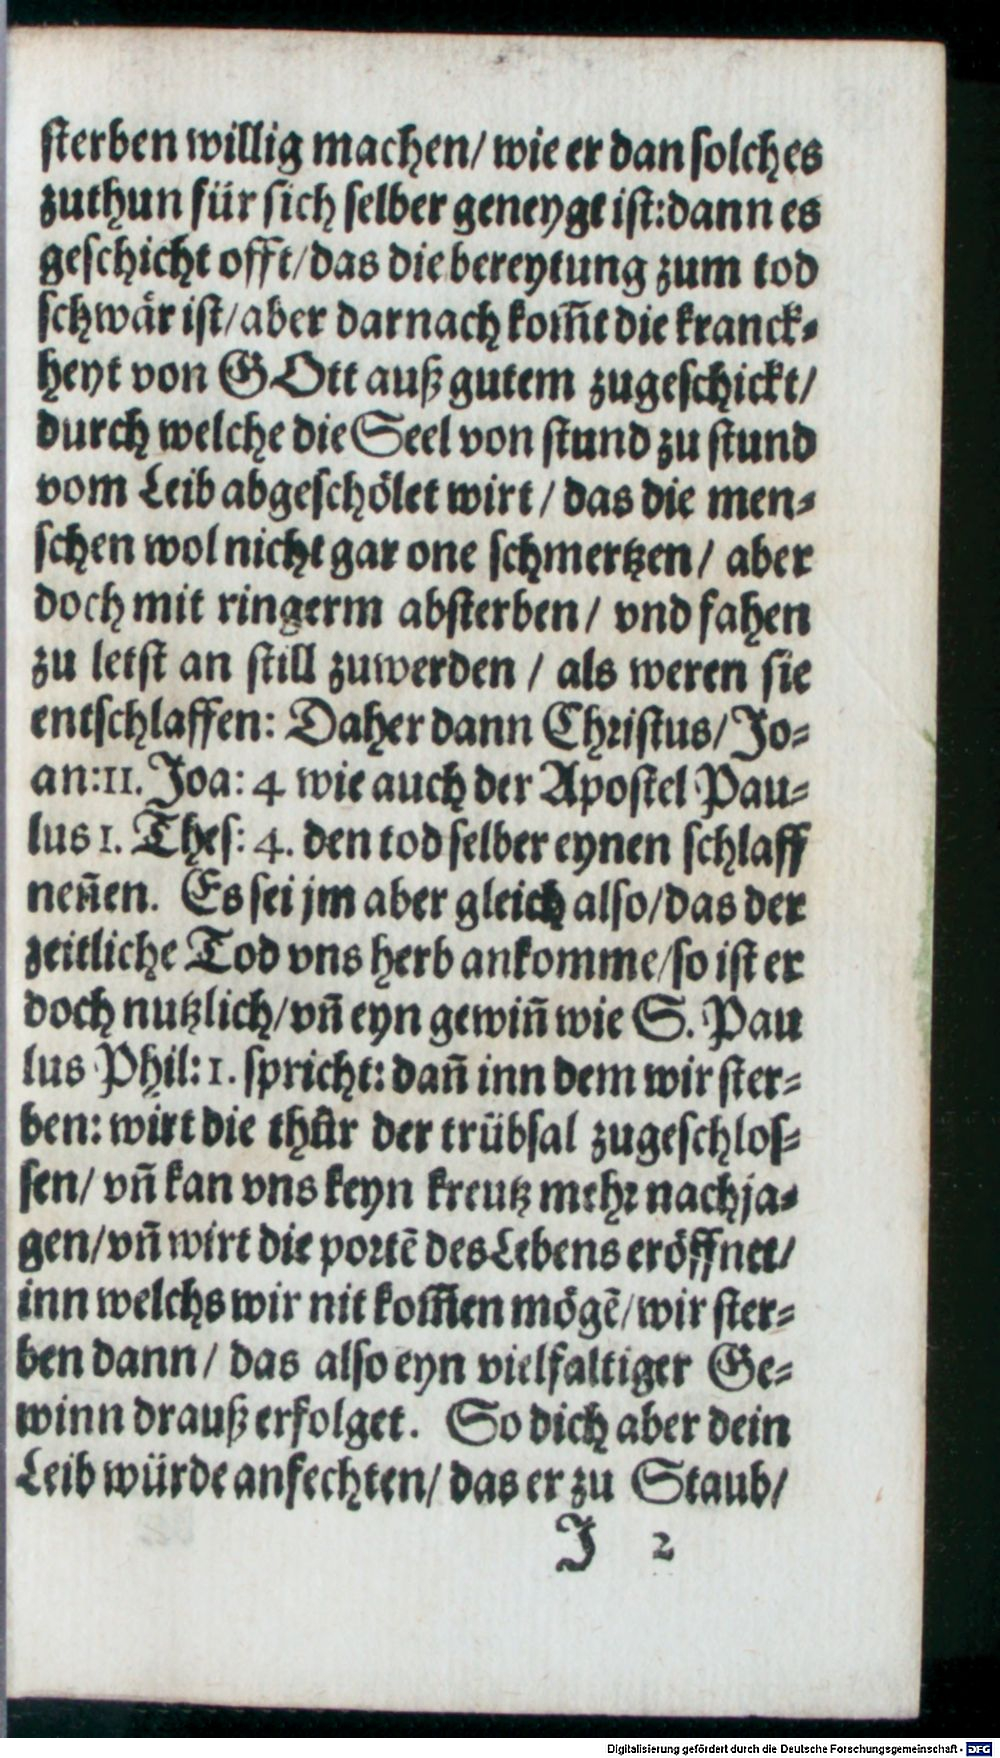 sterben willig machen/ wie er dan solches
zuthun für sich selber geneygt ist: dann es
geschicht offt/ das die bereytung zum tod
schwär ist/ aber darnach kom̃t die kranck⸗
heyt von GOtt auß gutem zugeschickt/
durch welche die Seel von stund zu stund
vom Leib abgeschölet wirt/ das die men⸗
schen wol nicht gar one schmertzen/ aber
doch mit ringerm absterben/ vnd fahen
zu letst an still zuwerden/ als weren sie
entschlaffen: Daher dann Christus/ Jo⸗
an: 11. Joa: 4 wie auch der Apostel Pau⸗
lus 1. Thes: 4. den tod selber eynen schlaff
neñen. Es sei jm aber gleich also/ das der
zeitliche Tod vns herb ankomme/ so ist er
doch nutzlich/ vñ eyn gewiñ wie S. Pau
lus Phil: 1. spricht: dañ inn dem wir ster⸗
ben: wirt die thůr der trübsal zugeschlos⸗
sen/ vñ kan vns keyn kreutz mehr nachja⸗
gen/ vñ wirt die portẽ des Lebens eröffnet/
inn welchs wir nit kom̃en mögẽ/ wir ster⸗
ben dann/ das also eyn vielfaltiger Ge⸗
winn drauß erfolget. So dich aber dein
Leib würde anfechten/ das er zu Staub/
J 2
Digitalisierung gefördert durch die Deutsche Forschungsgemeinschaft - DFG